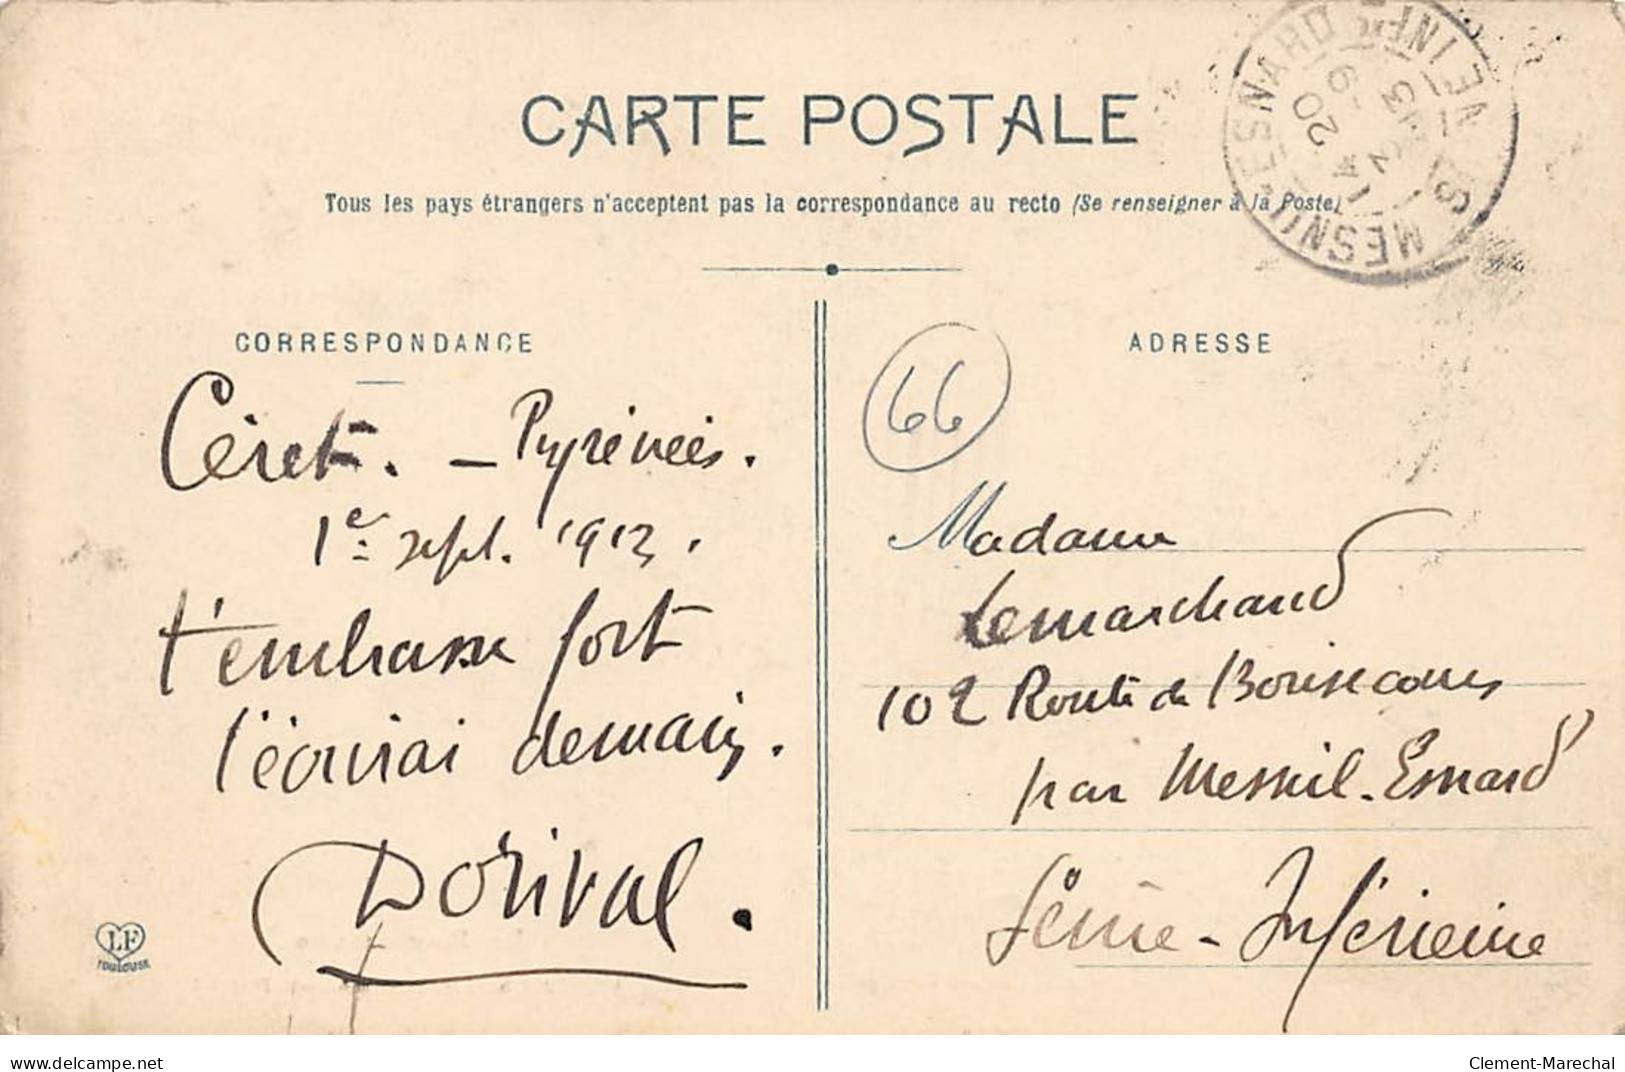 CARTE POSTALE
Tous les pays étrangers n'acceptent pas la correspondance au recto (Se renseigner à la Poste)
MESNIL-ESNARD
14 20
3
CORRESPONDANCE
Céret. – Pyrénées.
1e sept. 1913.
t'embrasse fort
t'écrirai demain.
Dorival.
LF
TOULOUSE
ADRESSE
66
Madame
Lemarchand
102 Route de Bonsecours
par Mesnil-Esnard
Seine-Inférieure
Clement-Marechal
www.delcampe.net